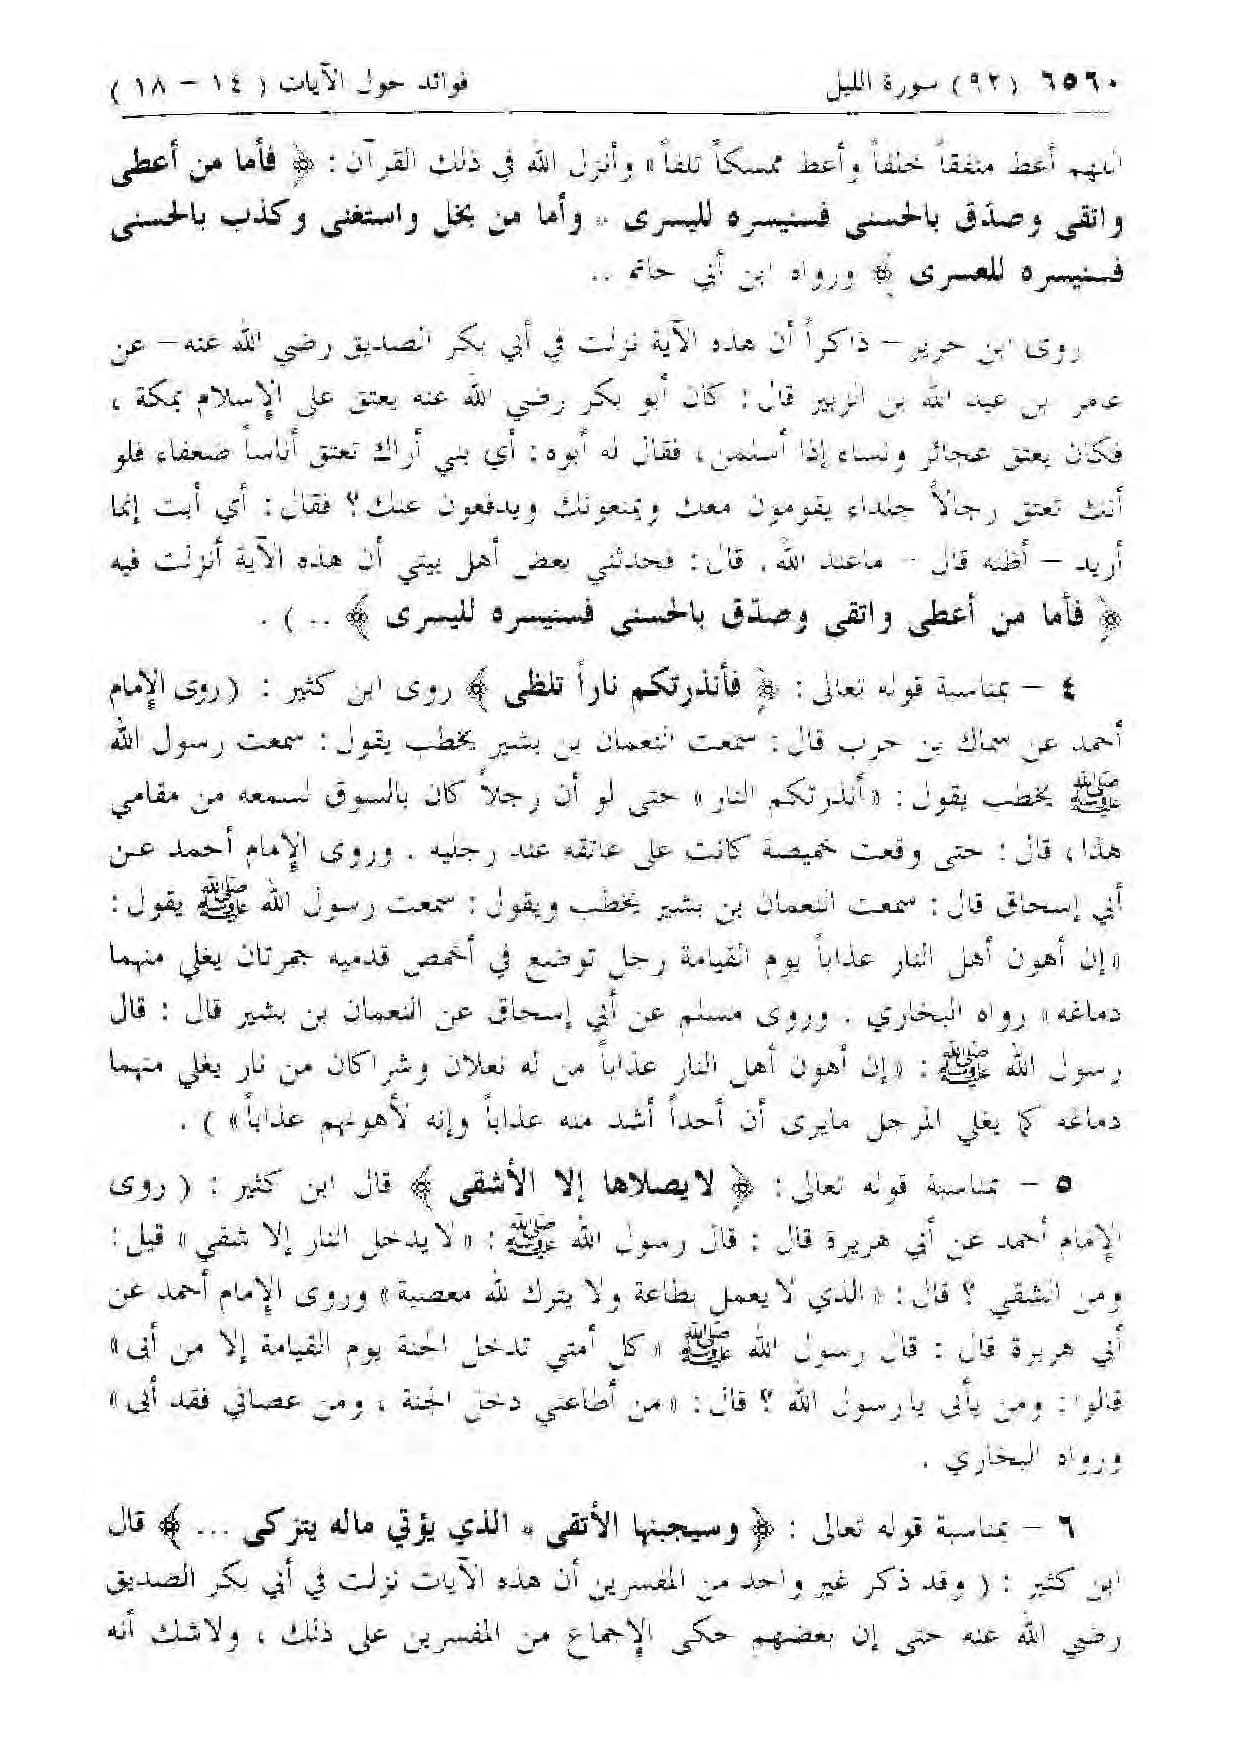 ٦٥٦٠ (٩٢) سورة الليل فوائد حول الآيات ( ١٤ – ١٨ )
اللهم أعط منفقاً خلفاً وأعط ممسكاً تلفاً» وأنزل الله في ذلك القرآن : ﴿ فأما من أعطى
واتقى وصدّق بالحسنى فسنيسره لليسرى * وأما من بخل واستغنى وكذب بالحسنى
فسنيسره للعسرى ﴾ ورواه ابن أبي حاتم ..
روى ابن جرير – ذاكراً أن هذه الآية نزلت في أبي بكر الصديق رضي الله عنه – عن
عامر بن عبد الله بن الزبير قال : كان أبو بكر رضي الله عنه يعتق على الإسلام بمكة ،
فكان يعتق عجائز ونساء إذا أسلمن ، فقال له أبوه : أي بني أراك تعتق أناساً ضعفاء فلو
أنك تعتق رجالاً جلداء يقومون معك ويمنعونك ويدفعون عنك ؟ فقال : أي أبت إنما
أريد – أظنه قال – ماعند الله . قال : فحدثني بعض أهل بيتي أن هذه الآية أنزلت فيه
﴿ فأما من أعطى واتقى وصدّق بالحسنى فسنيسره لليسرى ﴾ .. ) .
٤ – بمناسبة قوله تعالى : ﴿ فأنذرتكم ناراً تلظى ﴾ روى ابن كثير : ( روى الإمام
أحمد عن سماك بن حرب قال : سمعت النعمان بن بشير يخطب يقول : سمعت رسول الله
ﷺ يخطب يقول : «أنذرتكم النار» حتى لو أن رجلاً كان بالسوق لسمعه من مقامي
هذا ، قال : حتى وقعت خميصة كانت على عاتقه عند رجليه . وروى الإمام أحمد عن
أبي إسحاق قال : سمعت النعمان بن بشير يخطب ويقول : سمعت رسول الله ﷺ يقول :
«إن أهون أهل النار عذاباً يوم القيامة رجل توضع في أخمص قدميه جمرتان يغلي منهما
دماغه» رواه البخاري . وروى مسلم عن أبي إسحاق عن النعمان بن بشير قال : قال
رسول الله ﷺ : «إن أهون أهل النار عذاباً من له نعلان وشراكان من نار يغلي منهما
دماغه كما يغلي المرجل مايرى أن أحداً أشد منه عذاباً وإنه لأهونهم عذاباً» ) .
٥ – بمناسبة قوله تعالى : ﴿ لايصلاها إلا الأشقى ﴾ قال ابن كثير : ( روى
الإمام أحمد عن أبي هريرة قال : قال رسول الله ﷺ : «لايدخل النار إلا شقي» قيل :
ومن الشقي ؟ قال : «الذي لايعمل بطاعة ولايترك لله معصية» وروى الإمام أحمد عن
أبي هريرة قال : قال رسول الله ﷺ «كل أمتي تدخل الجنة يوم القيامة إلا من أبى»
قالوا : ومن يأبى يارسول الله ؟ قال : «من أطاعني دخل الجنة ، ومن عصاني فقد أبى»
ورواه البخاري .
٦ – بمناسبة قوله تعالى : ﴿ وسيجنبها الأتقى * الذي يؤتي ماله يتزكى ... ﴾ قال
ابن كثير : ( وقد ذكر غير واحد من المفسرين أن هذه الآيات نزلت في أبي بكر الصديق
رضي الله عنه حتى إن بعضهم حكى الإجماع من المفسرين على ذلك ، ولاشك أنه